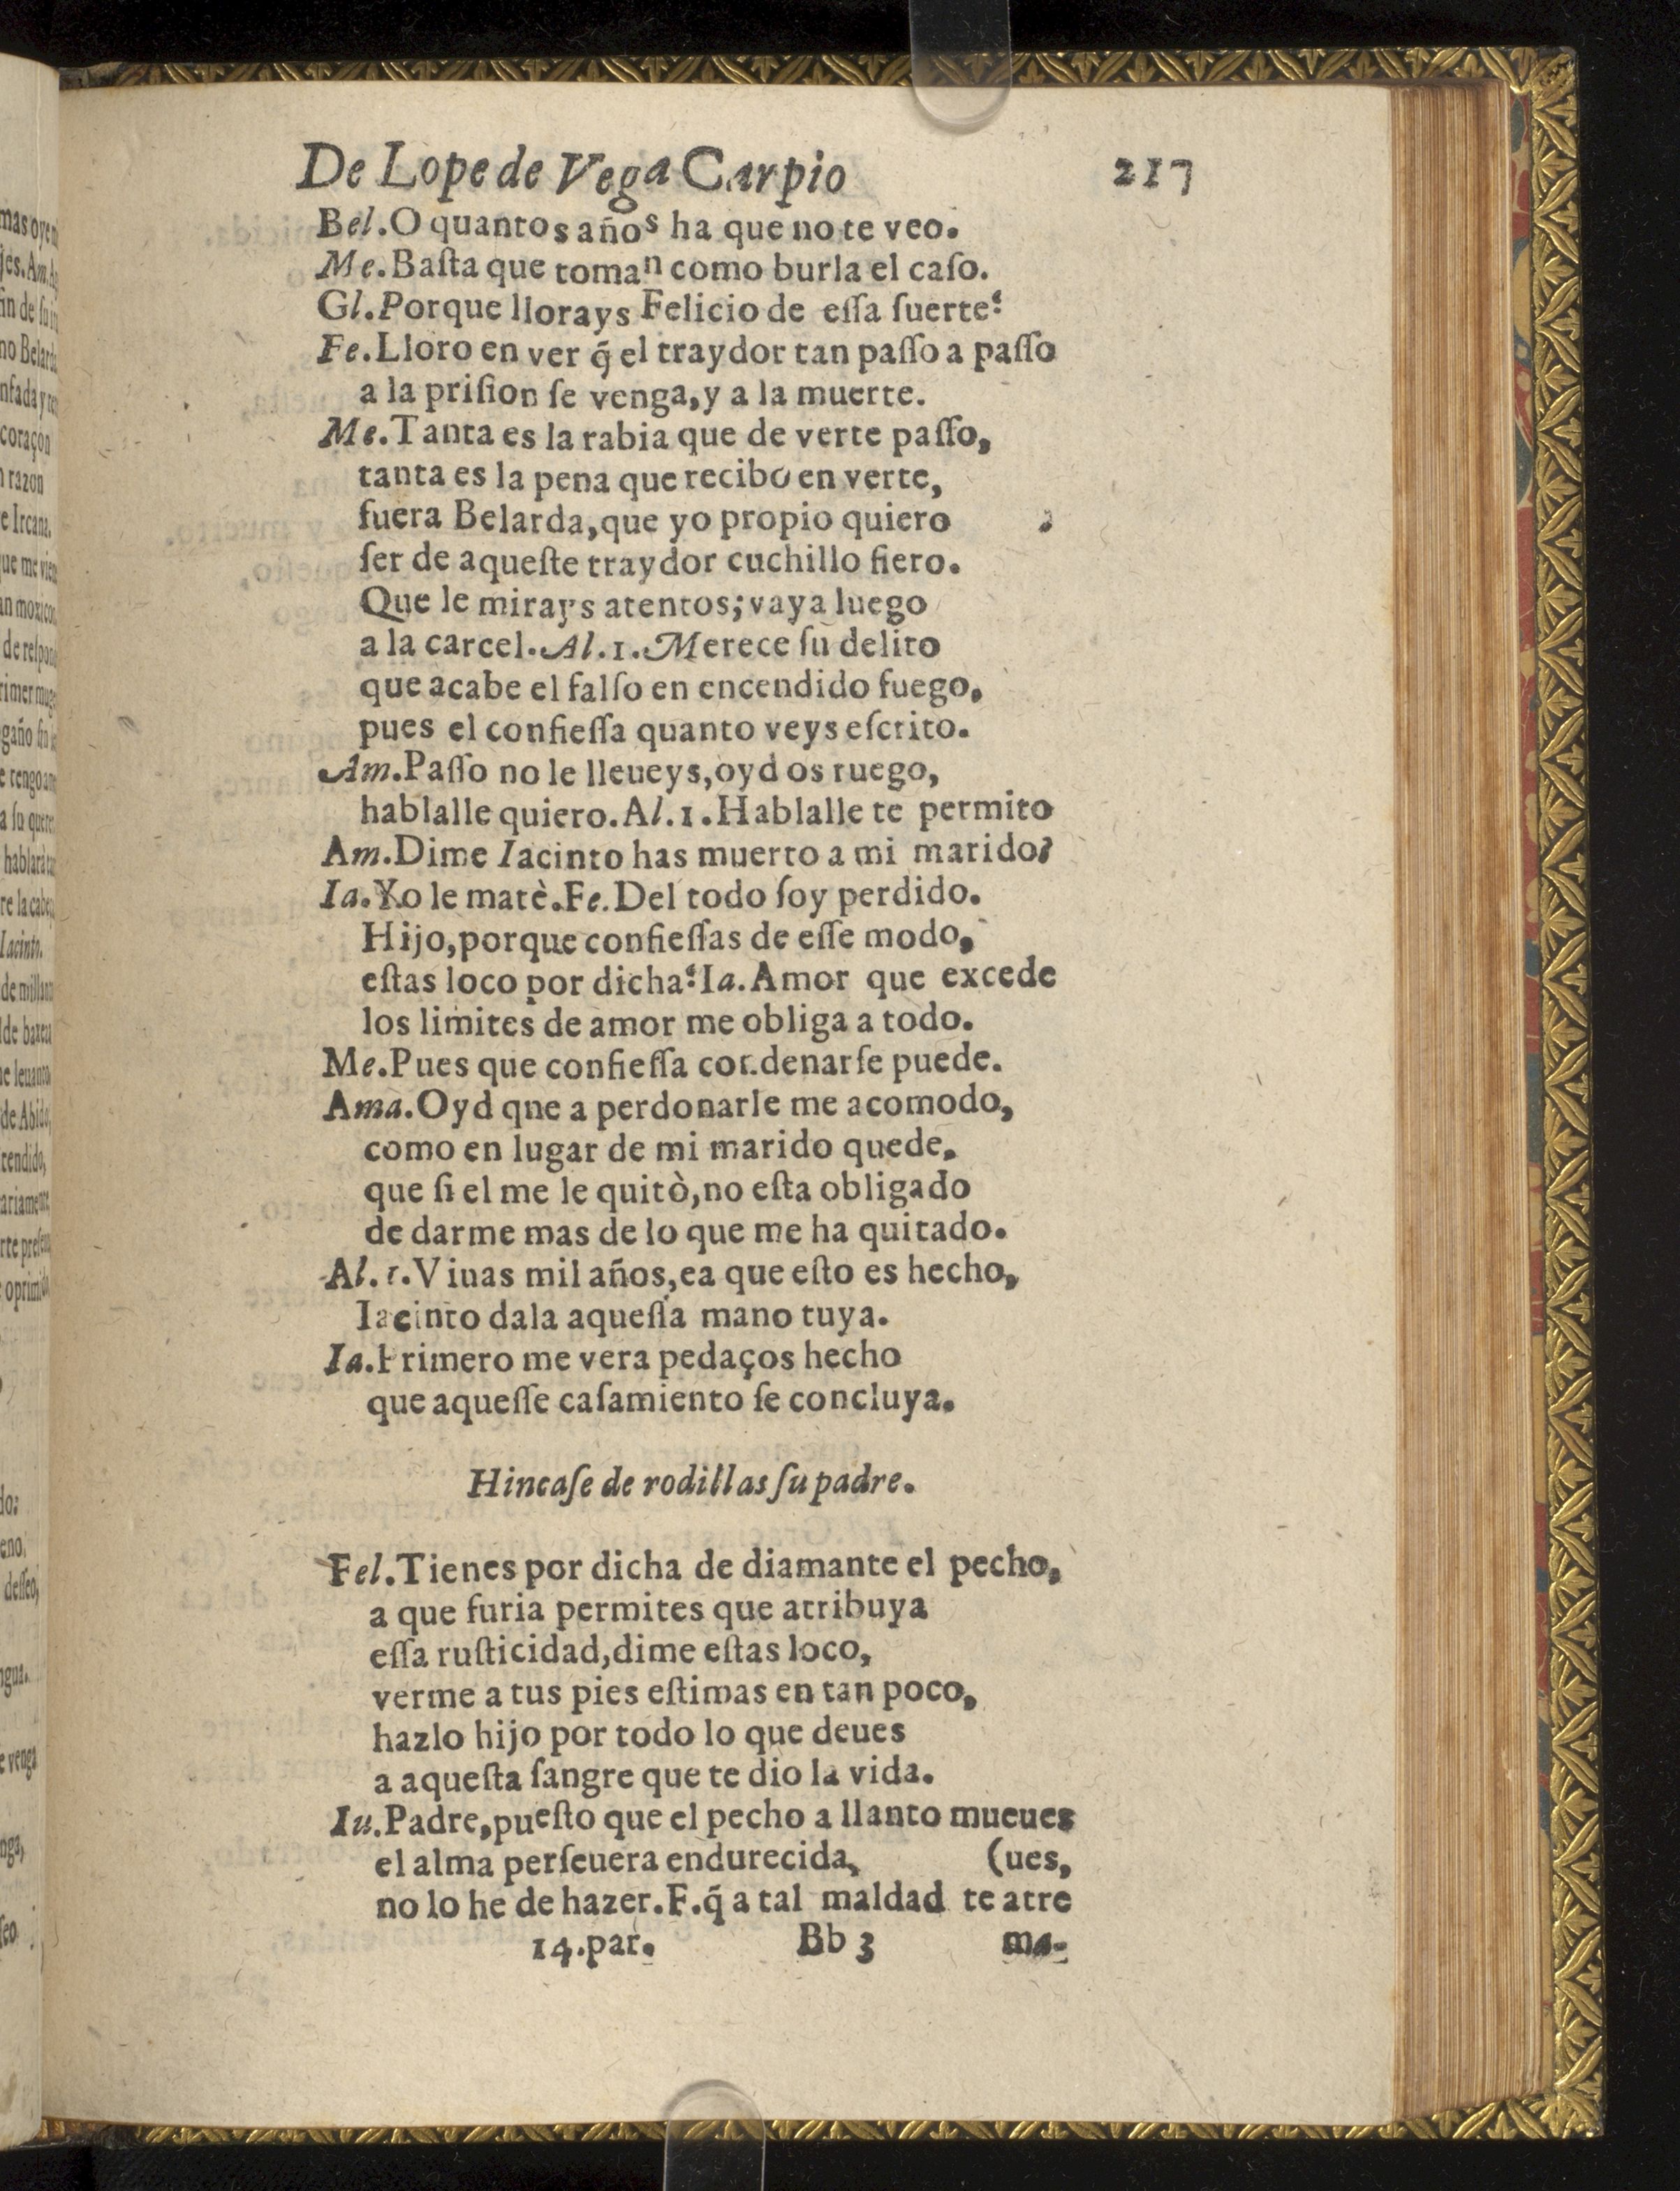 De Lope de Vega Carpio 217
Bel.O quantos años ha que no te veo.
Me.Baſta que toman como burla el caſo.
Gl.Porque llorays Felicio de eſſa ſuerte?
Fe.Lloro en ver q̃ el traydor tan paſſo a paſſo
a la priſion ſe venga,y a la muerte.
Me.Tanta es la rabia que de verte paſſo,
tanta es la pena que recibo en verte,
fuera Belarda,que yo propio quiero
ſer de aqueſte traydor cuchillo fiero.
Que le mirays atentos;vaya luego
a la carcel.Al.1.Merece ſu delito
que acabe el falſo en encendido fuego,
pues el confieſſa quanto veys eſcrito.
Am.Paſſo no le lleueys,oyd os ruego,
hablalle quiero.Al.1.Hablalle te permito
Am.Dime Iacinto has muerto a mi marido?
Ia.Yo le matè.Fe.Del todo ſoy perdido.
Hijo,porque confieſſas de eſſe modo,
eſtas loco por dicha?Ia.Amor que excede
los limites de amor me obliga a todo.
Me.Pues que confieſſa condenarſe puede.
Ama.Oyd qne a perdonarle me acomodo,
como en lugar de mi marido quede,
que ſi el me le quitò,no eſta obligado
de darme mas de lo que me ha quitado.
Al.1.Viuas mil años,ea que eſto es hecho,
Iacinto dala aqueſſa mano tuya.
Ia.Primero me vera pedaços hecho
que aqueſſe caſamiento ſe concluya.
Hincaſe de rodillas ſu padre.
Fel.Tienes por dicha de diamante el pecho,
a que furia permites que atribuya
eſſa ruſticidad,dime eſtas loco,
verme a tus pies eſtimas en tan poco,
hazlo hijo por todo lo que deues
a aqueſta ſangre que te dio la vida.
Iu.Padre,pueſto que el pecho a llanto mueues
el alma perſeuera endurecida, (ues,
no lo he de hazer.F.q̃ a tal maldad te atre
14.par. Bb 3 ma-